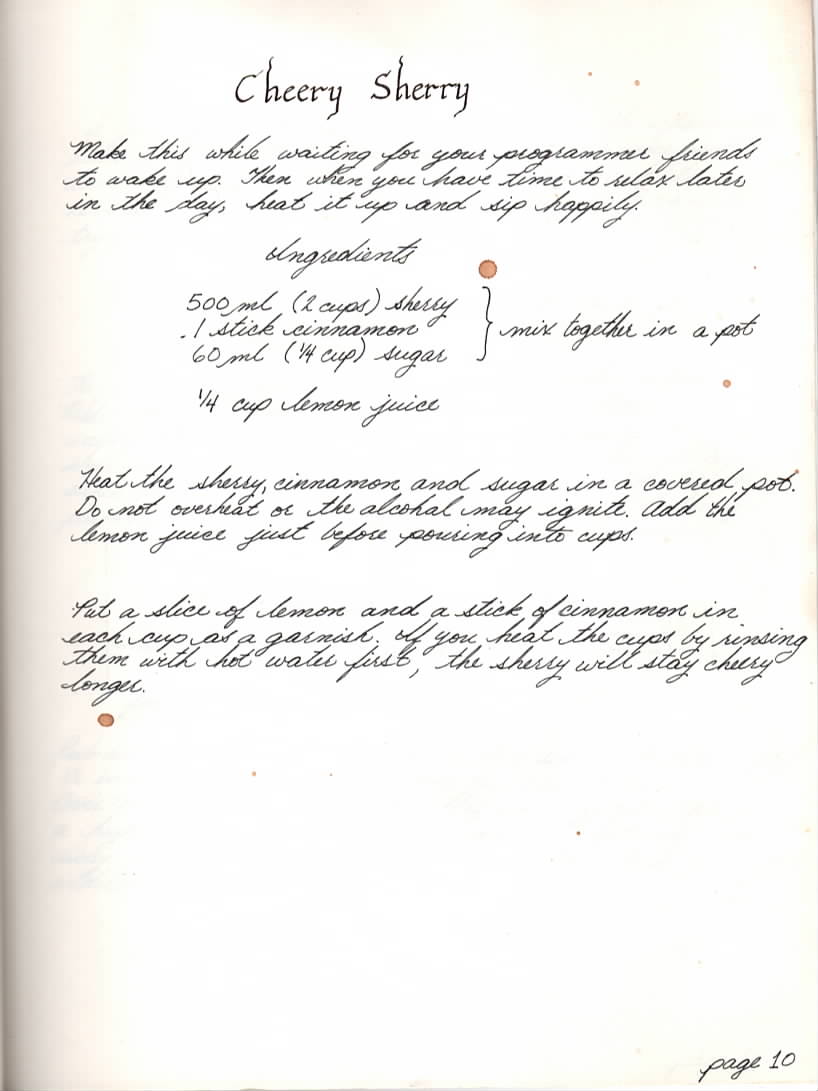 Cheery Sherry
Make this while waiting for your programmer friends
to wake up. Then when you have time to relax later
in the day, heat it up and sip happily.
Ingredients
500 ml (2 cups) sherry
1 stick cinnamon
60 ml (1/4 cup) sugar
} mix together in a pot
1/4 cup lemon juice
Heat the sherry, cinnamon and sugar in a covered pot.
Do not overheat or the alcohol may ignite. Add the
lemon juice just before pouring into cups.
Put a slice of lemon and a stick of cinnamon in
each cup as a garnish. If you heat the cups by rinsing
them with hot water first, the sherry will stay cheery
longer.
page 10